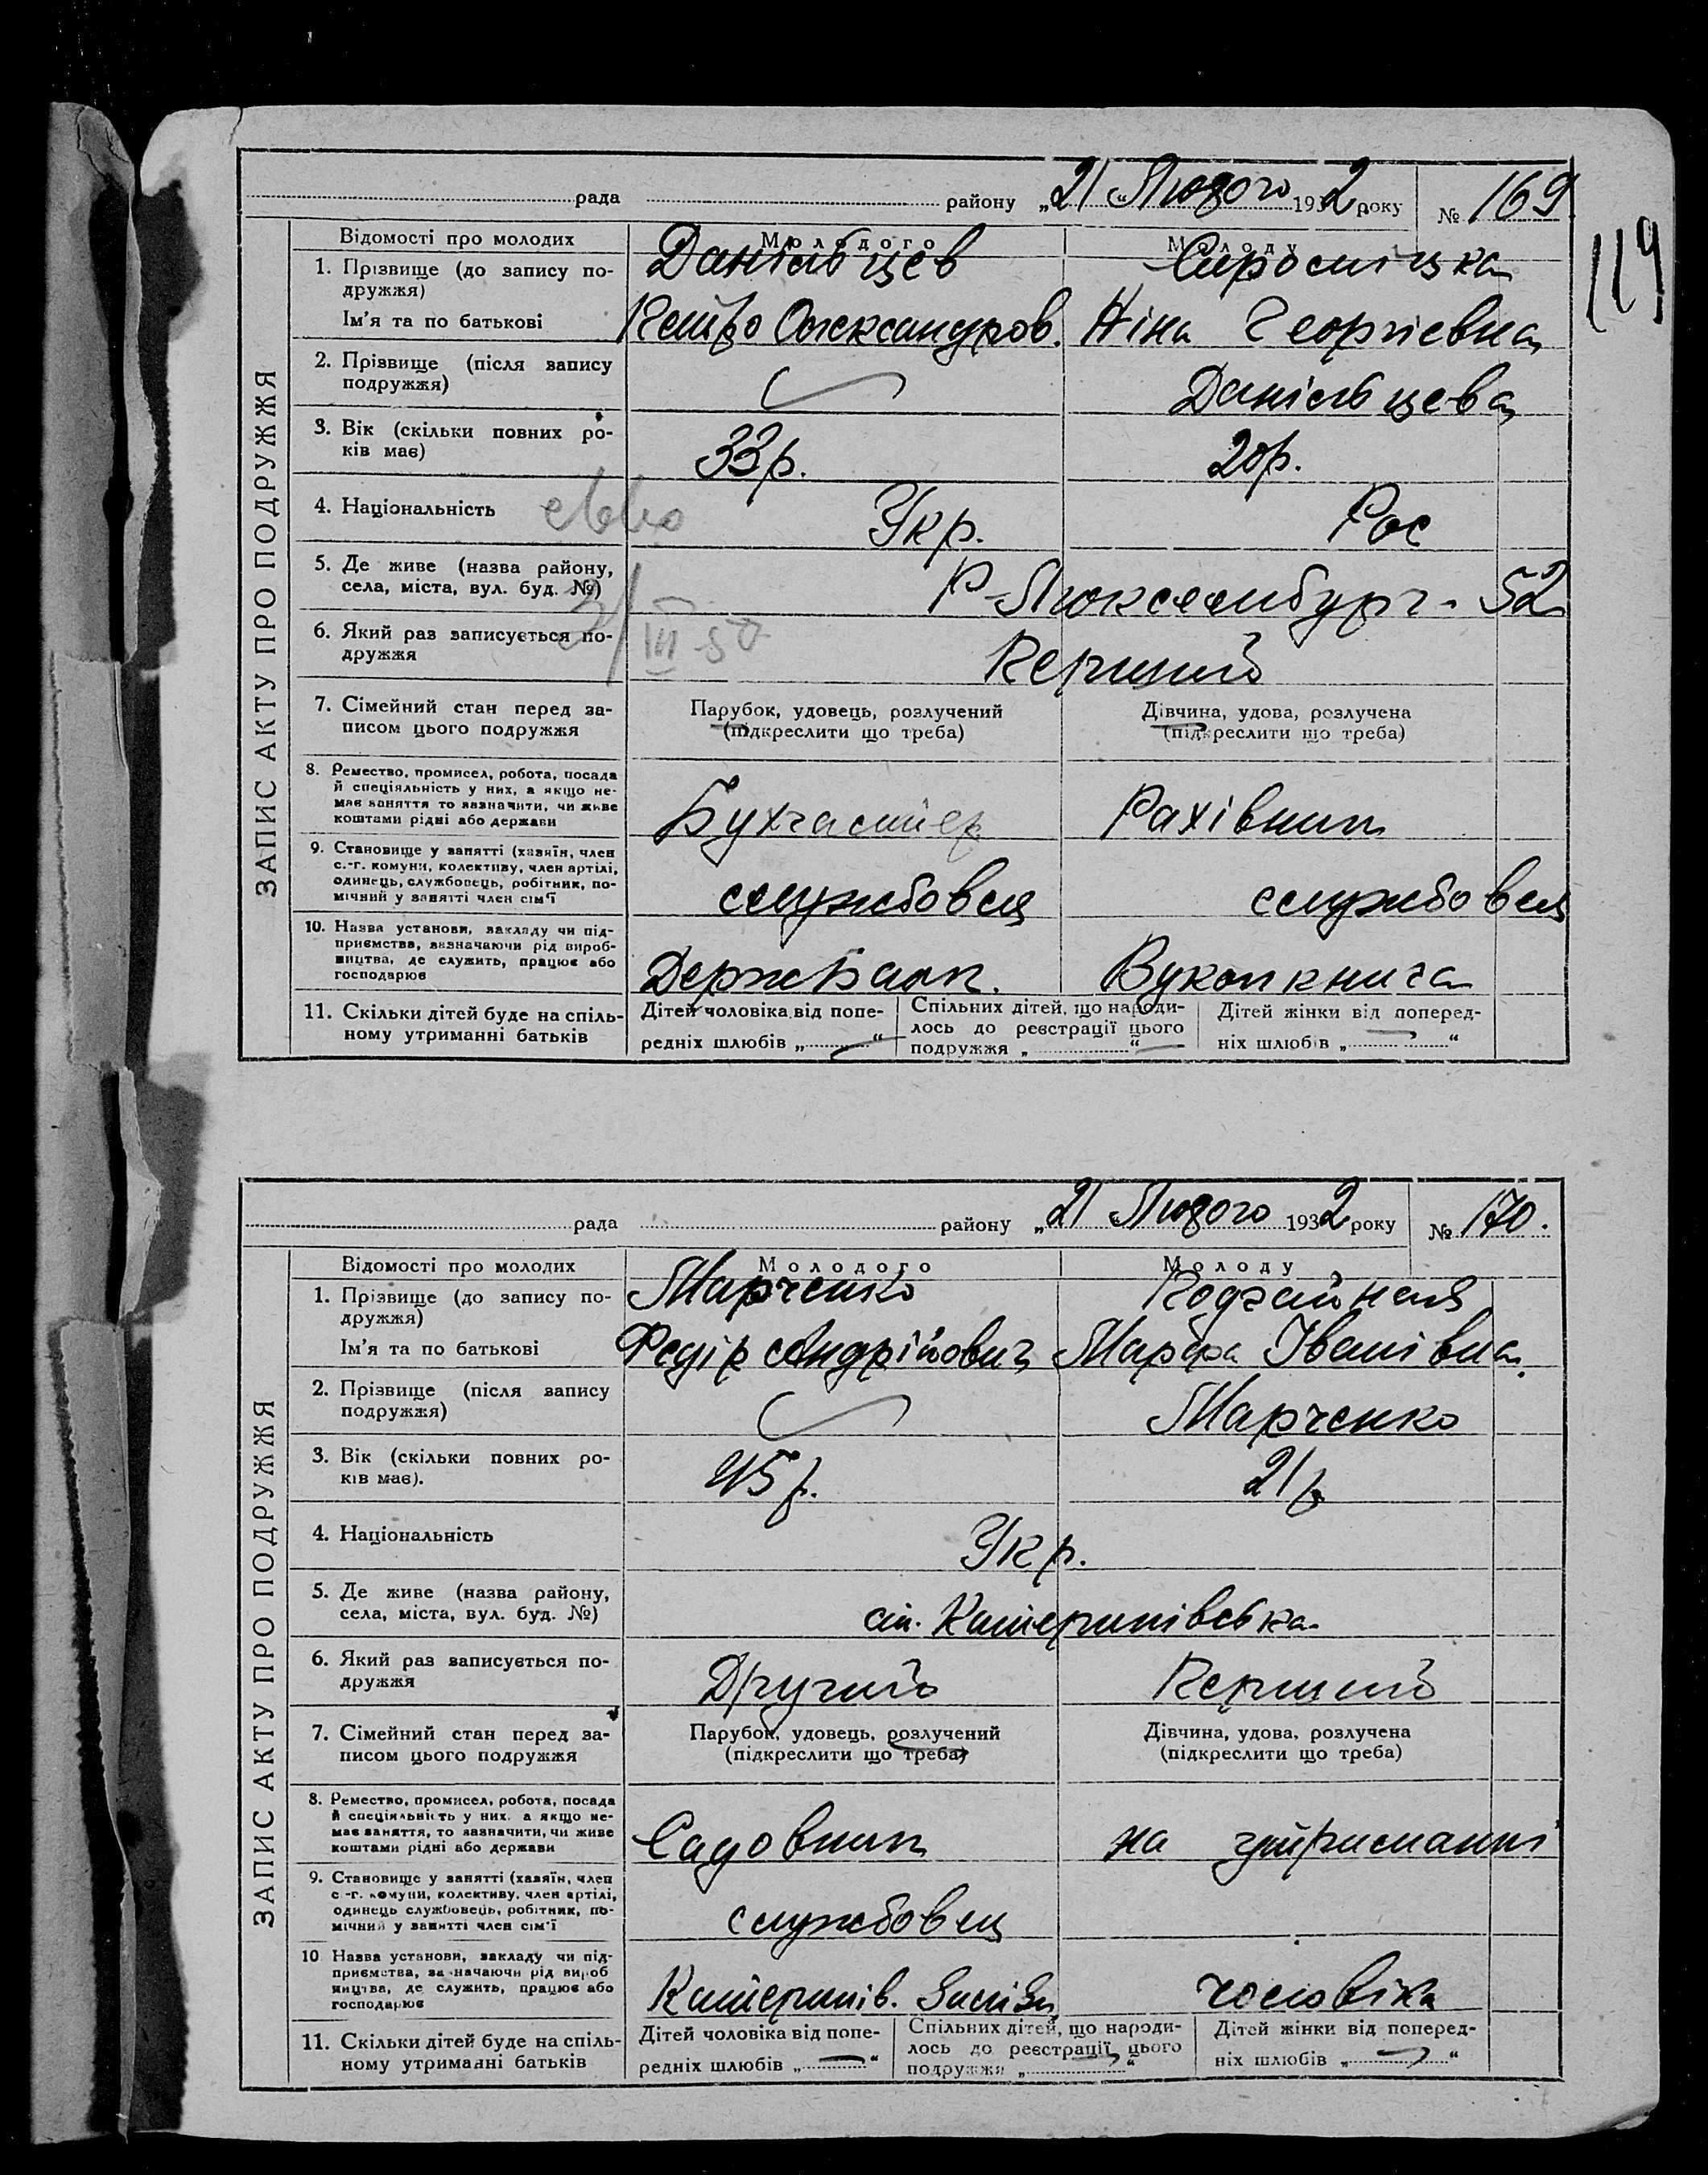 рада району „21" Лютого 1932 року № 169.
119
ЗАПИС АКТУ ПРО ПОДРУЖЖЯ
Відомості про молодих Молодого Молоду
1. Прізвище (до запису по-
дружжя) Данільцев
Ім'я та по батькові Петро Олександров. Ніна Георгієвна
2. Прізвище (після запису
подружжя) Данільцева
3. Вік (скільки повних ро-
ків має) 33 р. 20 р.
4. Національність Укр. Рос
5. Де живе (назва району,
села, міста, вул. буд. №) Р-Люксембург - 52
6. Який раз записується по-
дружжя Перший
III 50
7. Сімейний стан перед за-
писом цього подружжя
Парубок, удовець, розлучений
(підкреслити що треба)
Дівчина, удова, розлучена
(підкреслити що треба)
8. Ремество, промисел, робота, посада
й спеціяльність у них, а якщо не-
має заняття то зазначити, чи живе
коштами рідні або держави
Бухгалтер Рахівник
9. Становище у занятті (хазяїн, член
с.-г. комуни, колективу, член артілі,
одинець, службовець, робітник, по-
мічний у занятті член сім'ї
службовец службовец
10. Назва установи, закладу чи під-
приємства, зазначаючи рід вироб-
ництва, де служить, працює або
господарює
ДержБанк. Вукопкнига
11. Скільки дітей буде на спіль-
ному утриманні батьків
Дітей чоловіка від попе-
редніх шлюбів „ — “
Спільних дітей, що народи-
лось до реєстрації цього
подружжя „ — “
Дітей жінки від поперед-
ніх шлюбів „ — “
рада району „21" Лютого 1932 року № 170.
ЗАПИС АКТУ ПРО ПОДРУЖЖЯ
Відомості про молодих Молодого Молоду
1. Прізвище (до запису по-
дружжя) Марченко
Ім'я та по батькові Федір Андрійович Марфа Іванівна
2. Прізвище (після запису
подружжя) Марченко
3. Вік (скільки повних ро-
ків має). 45 р. 21 р
4. Національність Укр.
5. Де живе (назва району,
села, міста, вул. буд. №) ст. Катеринівська
6. Який раз записується по-
дружжя Другий Перший
7. Сімейний стан перед за-
писом цього подружжя
Парубок, удовець, розлучений
(підкреслити що треба)
Дівчина, удова, розлучена
(підкреслити що треба)
8. Ремество, промисел, робота, посада
й спеціяльність у них, а якщо не-
має заняття, то зазначити, чи живе
коштами рідні або держави
Садовник на утриманні
9. Становище у занятті (хазяїн, член
с-г. комуни, колективу, член артілі,
одинець службовець, робітник, по-
мічний у занятті член сім'ї
службовец
10 Назва установи, закладу чи під-
приємства, зазначаючи рід вироб
ництва, де служить, працює або
господарює
Катеринів. чоловіка
11. Скільки дітей буде на спіль-
ному утриманні батьків
Дітей чоловіка від попе-
редніх шлюбів „ — “
Спільних дітей, що народи-
лось до реєстрації цього
подружжя „ — “
Дітей жінки від поперед-
ніх шлюбів „ — “